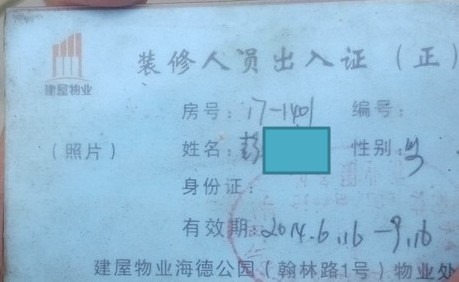 装修人员出入证（正）
建屋物业
房号：17-1401 编号：
（照片） 姓名：彭 性别：男
身份证：
有效期：2014.6.16-9.16
建屋物业海德公园（翰林路1号）物业处